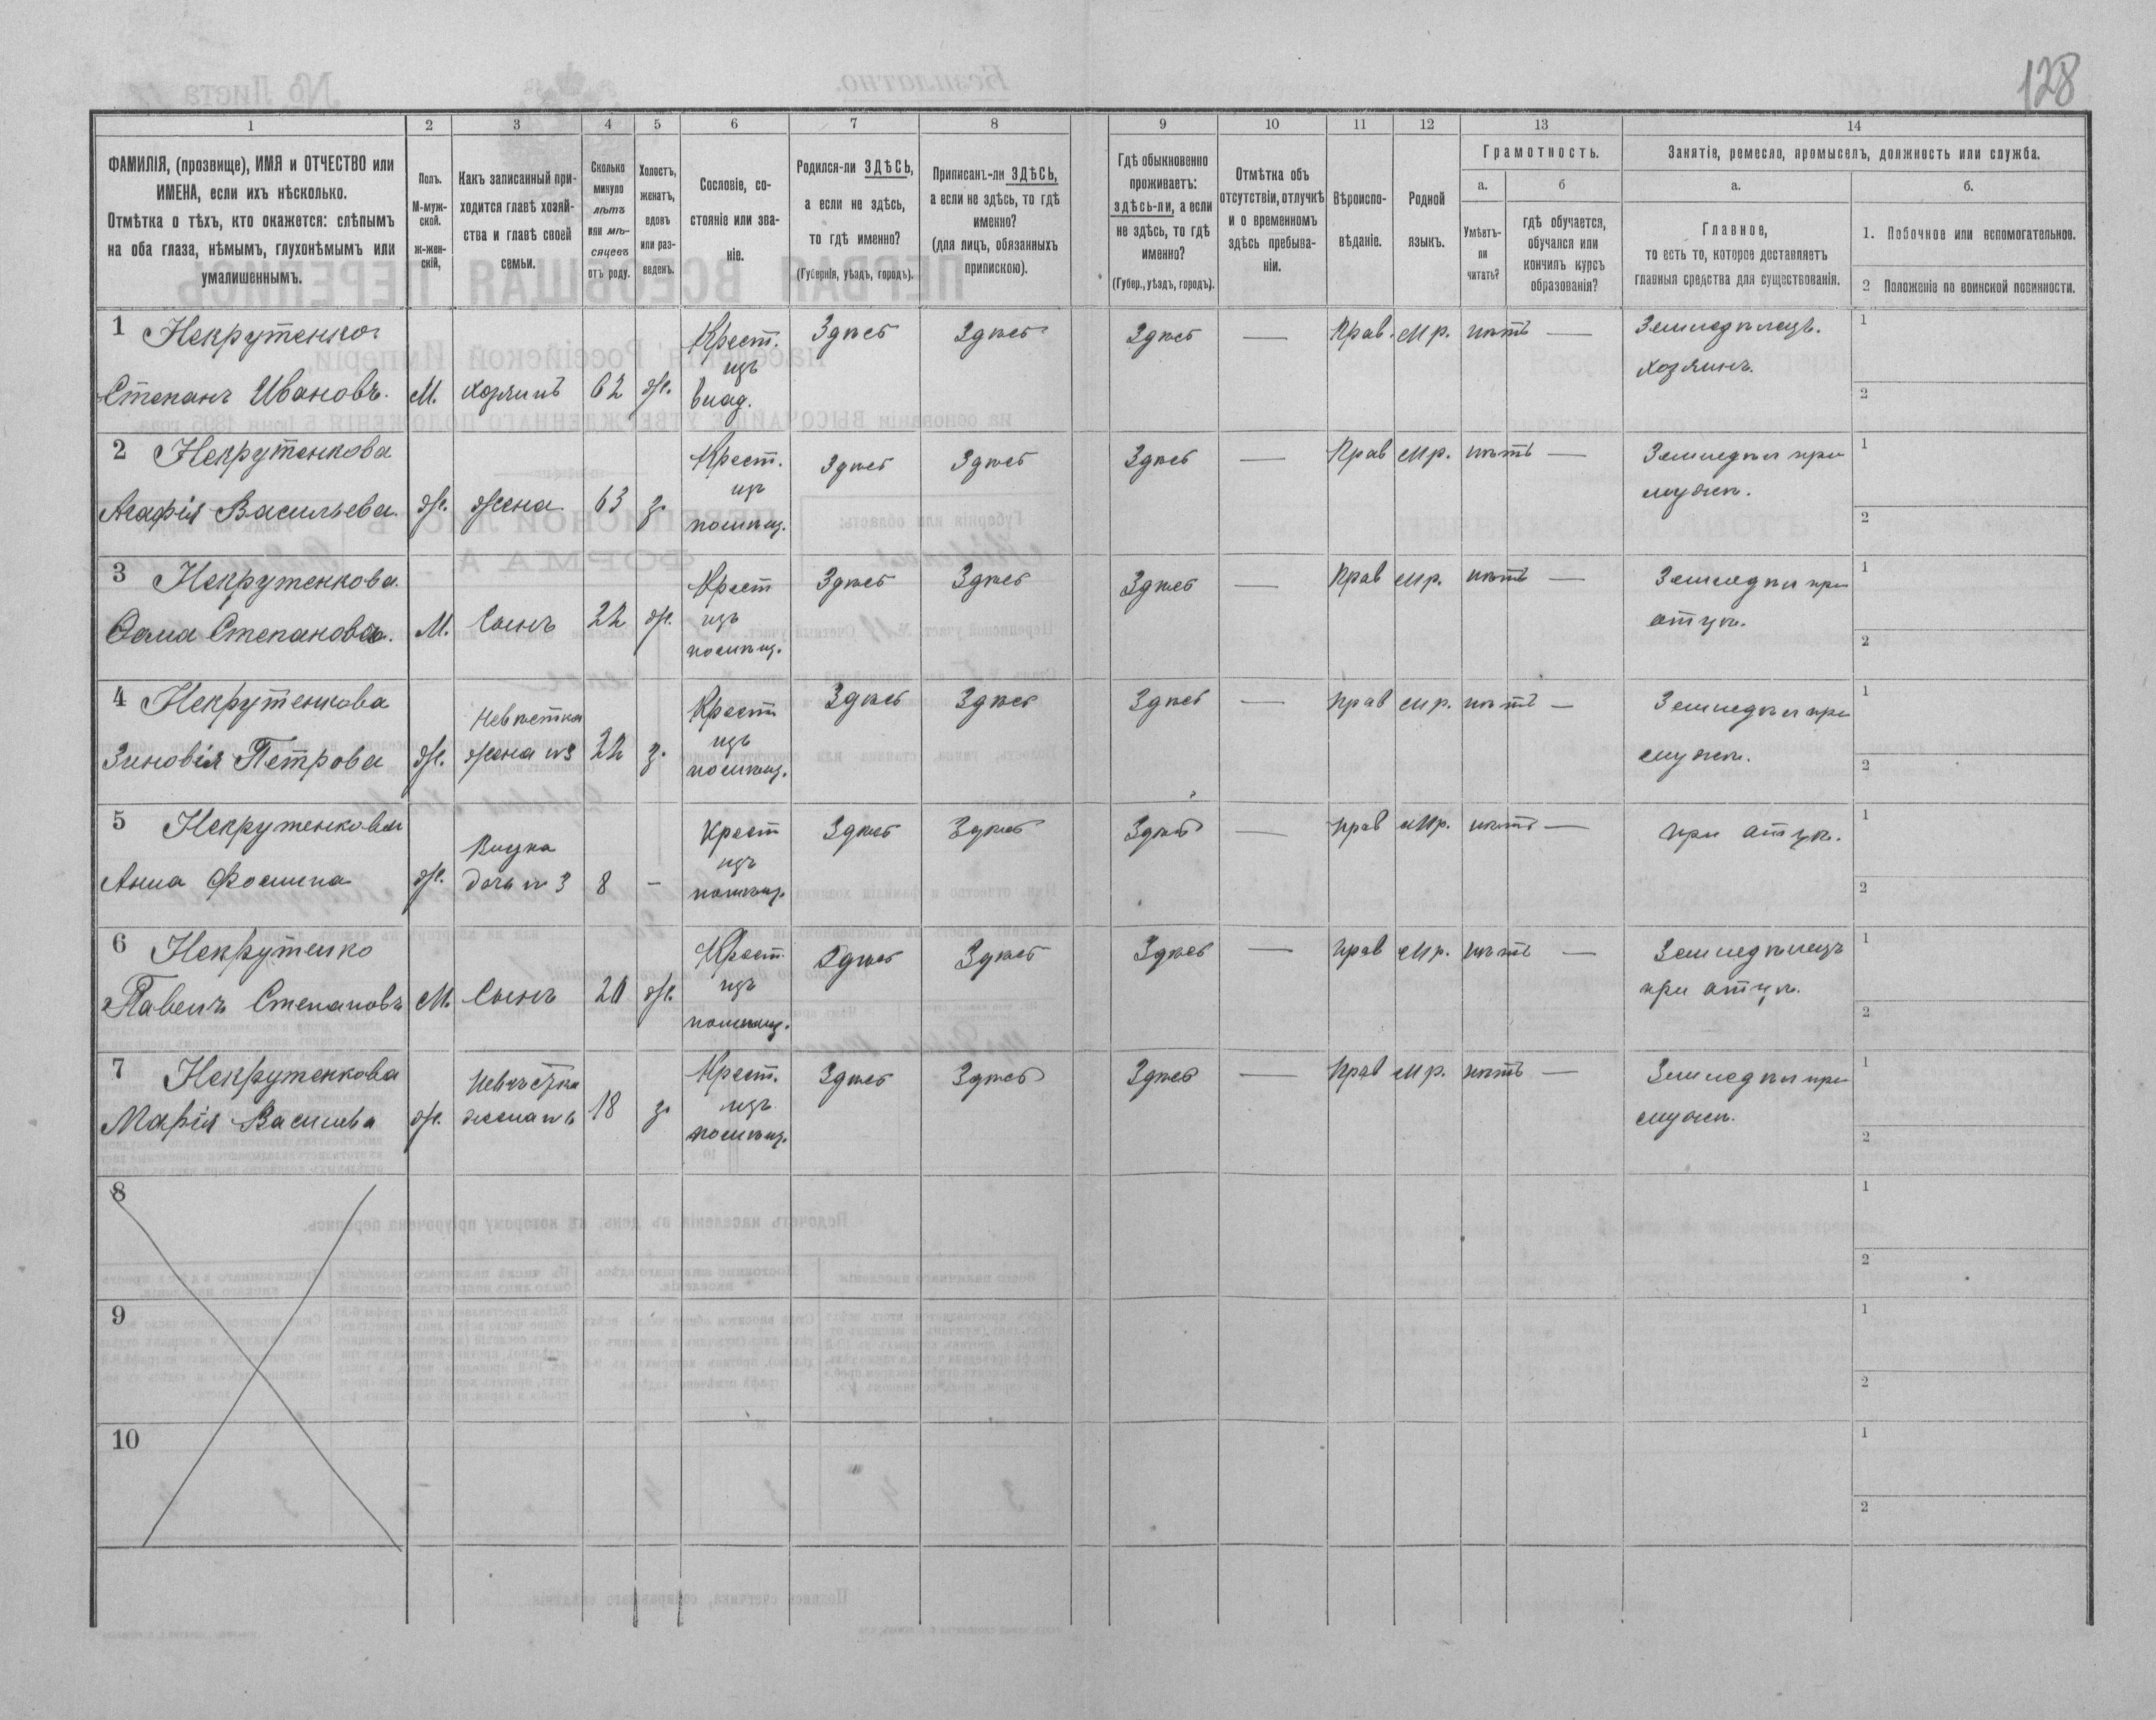 128
1 2 3 4 5 6 7 8 9 10 11 12 13 14
ФАМИЛІЯ, (прозвище), ИМЯ и ОТЧЕСТВО или
ИМЕНА, если ихъ нѣсколько.
Отмѣтка о тѣхъ, кто окажется: слѣпымъ
на оба глаза, нѣмымъ, глухонѣмымъ или
умалишеннымъ.
Полъ.
М-муж-
ской.
ж-жен-
скій,
Какъ записанный при-
ходится главѣ хозяй-
ства и главѣ своей
семьи.
Сколько
минуло
лѣтъ
или мѣ-
сяцевъ
отъ роду.
Холостъ,
женатъ,
вдовъ
или раз-
веденъ.
Сословіе, со-
стояніе или зва-
ніе.
Родился-ли ЗДѢСЬ,
а если не здѣсь,
то гдѣ именно?
(Губернія, уѣздъ, городъ).
Приписанъ-ли ЗДѢСЬ,
а если не здѣсь, то гдѣ
именно?
(для лицъ, обязанныхъ
припискою).
Гдѣ обыкновенно
проживаетъ:
здѣсь-ли, а если
не здѣсь, то гдѣ
именно?
(Губер., уѣздъ, городъ).
Отмѣтка объ
отсутствіи, отлучкѣ
и о временномъ
здѣсь пребыва-
ніи.
Вѣроиспо-
вѣданіе.
Родной
языкъ.
Грамотность.
а.
Умѣетъ-
ли
читать?
б
гдѣ обучается,
обучался или
кончилъ курсъ
образованія?
Занятіе, ремесло, промыселъ, должность или служба.
а.
Главное,
то есть то, которое доставляетъ
главныя средства для существованія.
б.
1. Побочное или вспомогательное.
2 Положеніе по воинской повинности.
1 Некрутенко Крест. Здѣсь Здѣсь Здѣсь — Прав. мр. нѣтъ — Земледѣлецъ. 1
изъ хозяинъ.
Степанъ Ивановъ. М. хозяинъ 62 ж. влад. 2
2 Некрутенкова Крест. Здѣсь Здѣсь Здѣсь — Прав мр. нѣтъ — Земледѣл при 1
изъ мужѣ.
Агафія Васильева ж. жена 63 з. помѣщ. 2
3 Некрутенкова Крест Здѣсь Здѣсь Здѣсь — Прав мр. нѣтъ — Земледѣл при 1
Ѳома Степановъ. М. Сынъ 22 ж. изъ отцѣ. 2
помѣщ.
4 Некрутенкова Невѣстка Крест Здѣсь Здѣсь Здѣсь — прав мр. нѣтъ — Земледѣл при 1
изъ
Зиновія Петрова ж. жена №3 22 з. помѣщ. мужѣ. 2
5 Некрутенкова Внука Крест Здѣсь Здѣсь Здѣсь — прав мр. нѣтъ — при отцѣ. 1
изъ
Анна Фомина ж. дочь № 3 8 — помѣщ. 2
6 Некрутенко Крест. Здѣсь Здѣсь Здѣсь — прав мр. нѣтъ — Земледѣлецъ 1
Павелъ Степановъ М. Сынъ 20 ж. изъ при отцѣ. 2
помѣщ.
7 Некрутенкова Невѣстка Крест. Здѣсь Здѣсь Здѣсь — Прав мр. нѣтъ — Земледѣл при 1
Марія Василева ж. жена № 6 18 з. изъ мужѣ.
помѣщ. 2
8 1
2
9 1
2
10 1
2